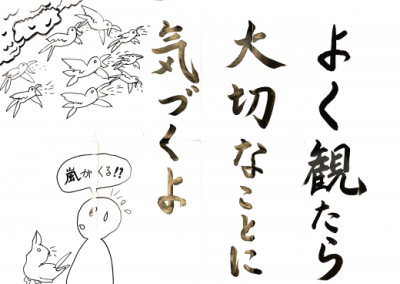 よく観たら
大切なことに
気づくよ
嵐がくる!?